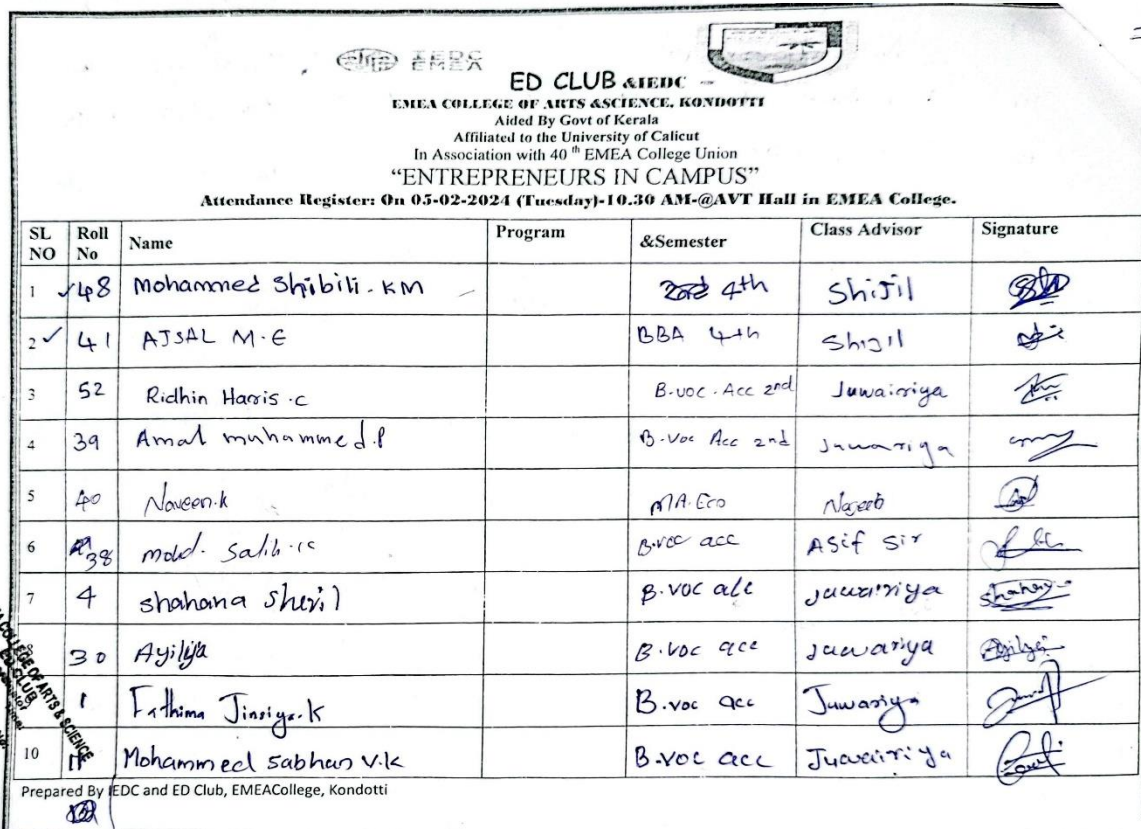 IEDC
EMEA
ED CLUB &IEDC
EMEA COLLEGE OF ARTS &SCIENCE, KONDOTTI
Aided By Govt of Kerala
Affiliated to the University of Calicut
In Association with 40 th EMEA College Union
“ENTREPRENEURS IN CAMPUS”
Attendance Register: On 05-02-2024 (Tuesday)-10.30 AM-@AVT Hall in EMEA College.
SL NO Roll No Name Program &Semester Class Advisor Signature
1 48 Mohammed Shibili. KM 4th Shijil
2 41 AJSAL M.E BBA 4th Shijil
3 52 Ridhin Harris .C B.voc . Acc 2nd Juwairiya
4 39 Amal muhammed.P B.Voc Acc 2nd Juwariya
5 40 Naveen.k MA.Eco Najeeb
6 38 mohd. Salih B.voc acc Asif Sir
7 4 shahana sheril B.voc acc juwairiya
30 Ayilya B.voc acc juwariya
1 Fathima Jinsiya.k B.voc acc Juwariya
10 11 Mohammed sabhan v.k B.voc acc Juwairiya
Prepared By IEDC and ED Club, EMEACollege, Kondotti
COLLEGE OF ARTS & SCIENCE
ED CLUB